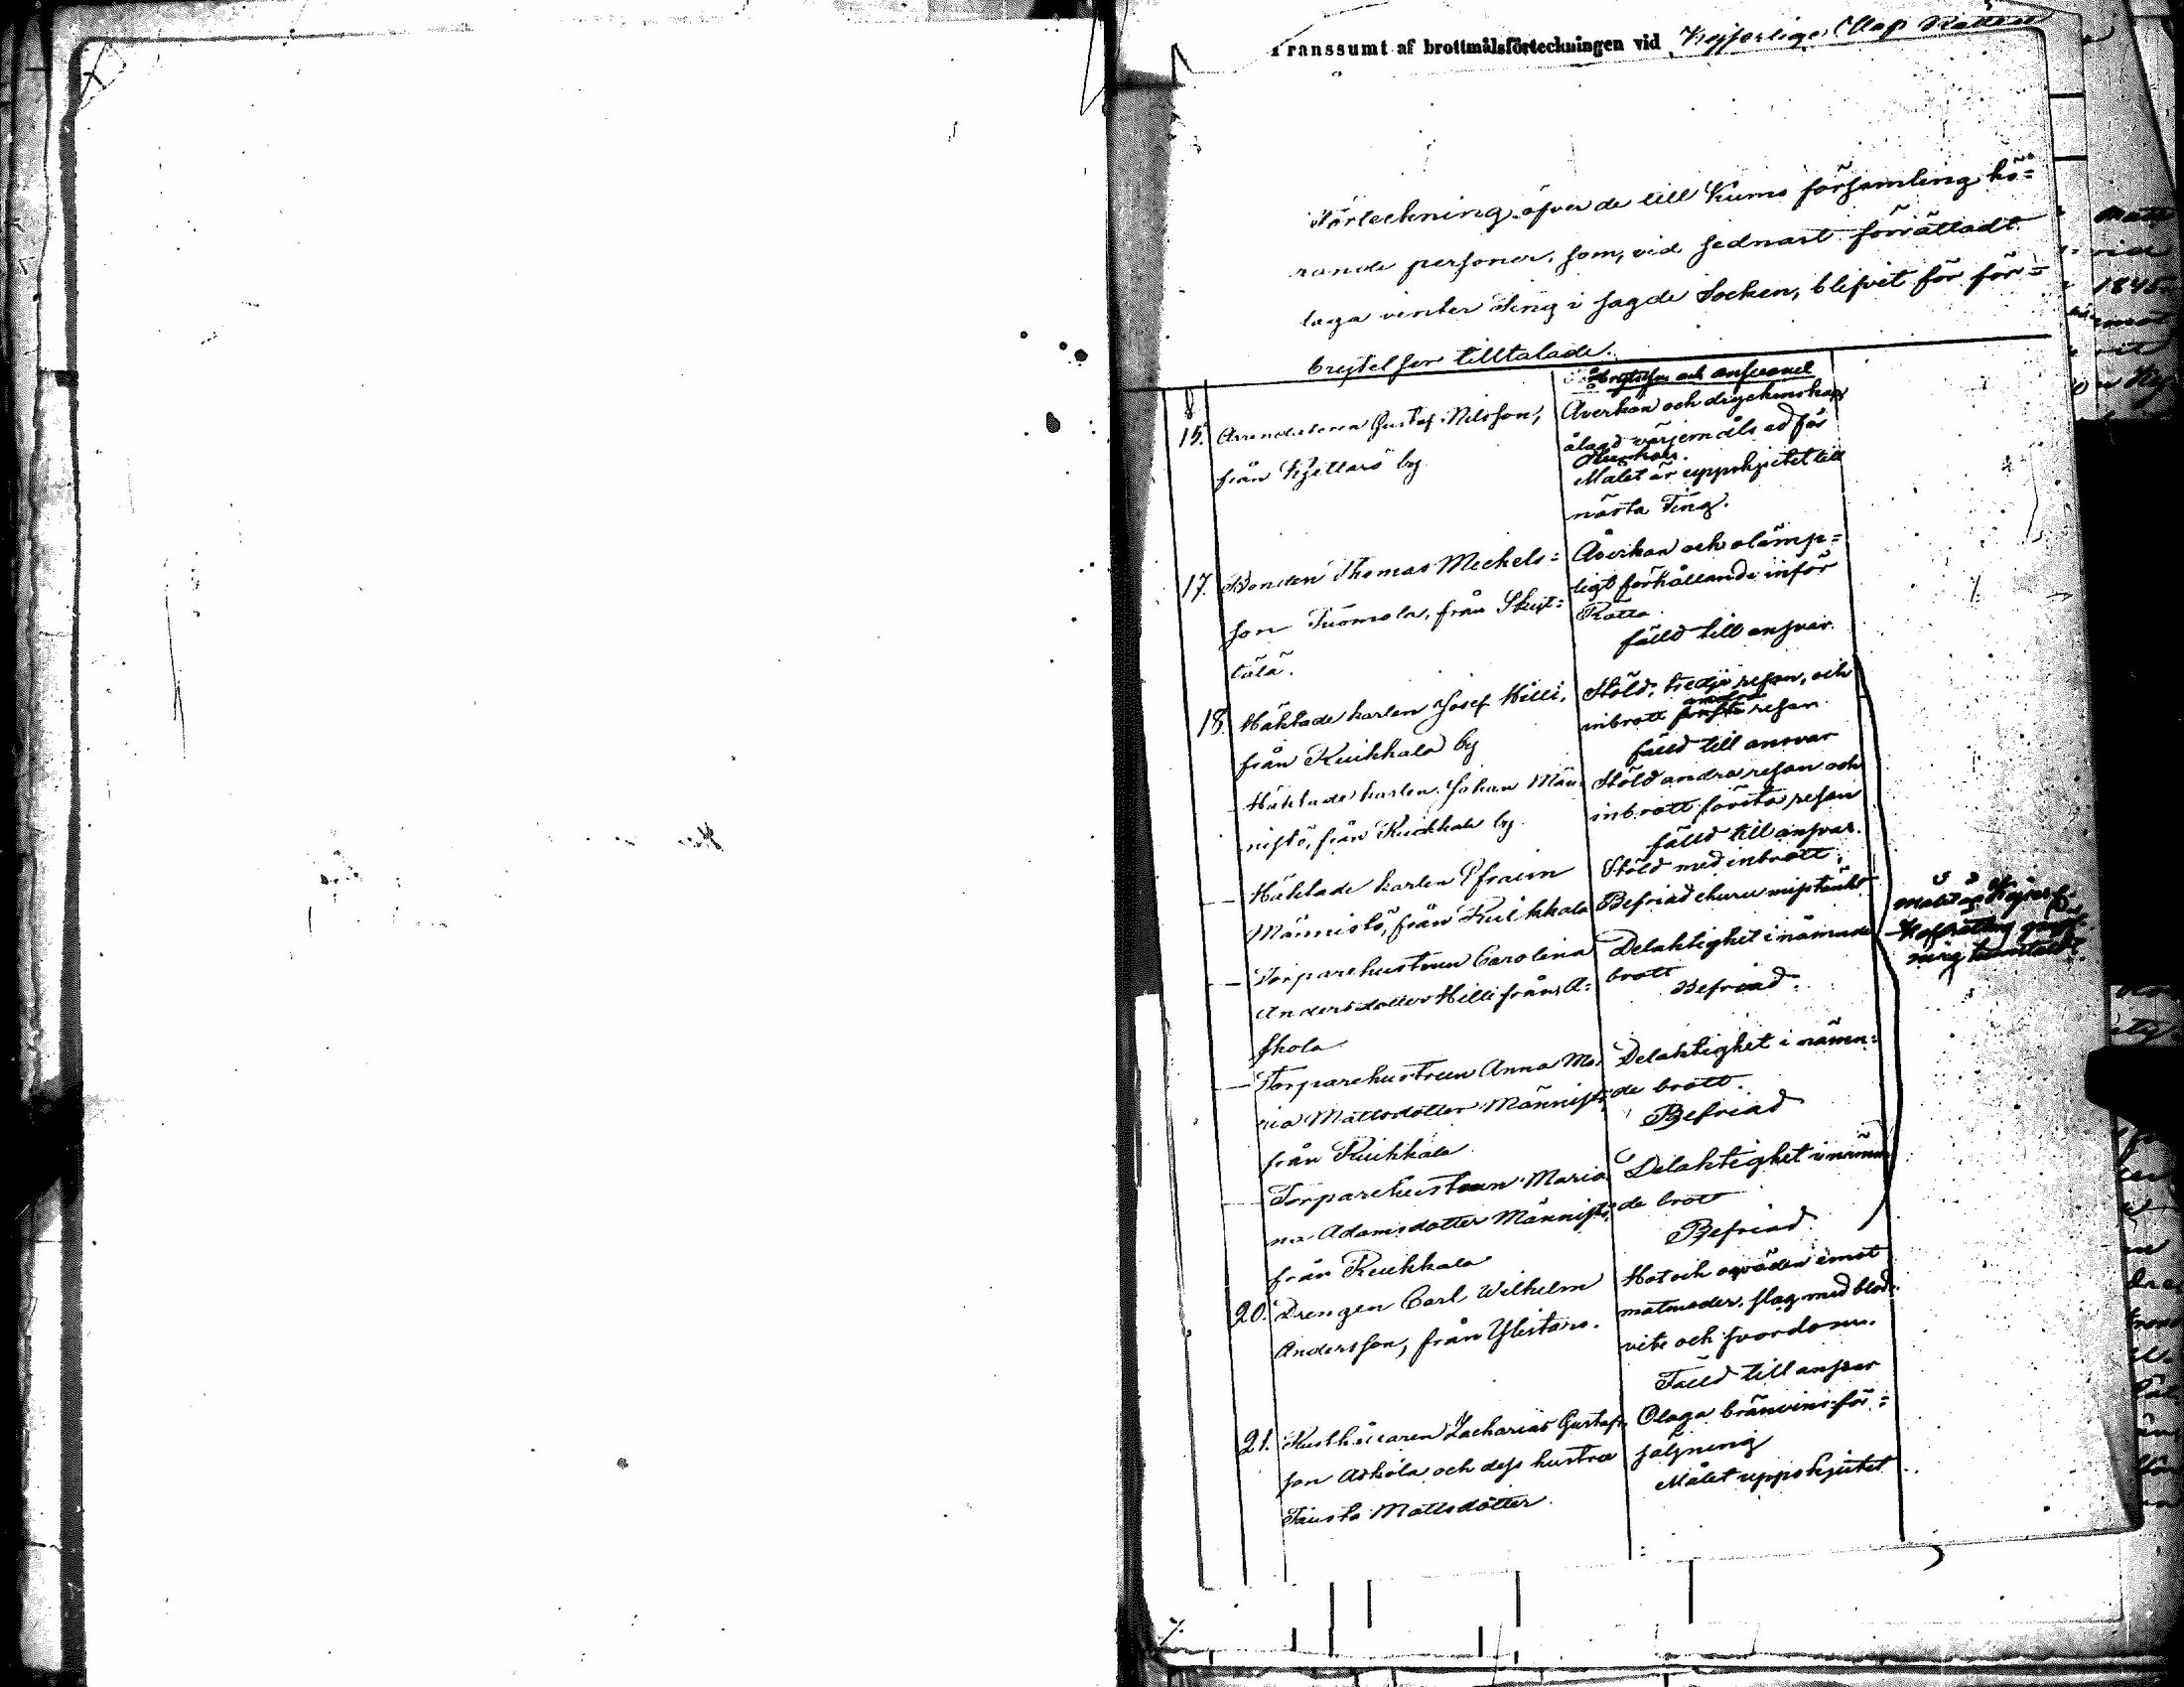 Transsumt af brottmålsförteckningen vid Kejserliga
Förteckning öfver de till Kumo församling hö=
rande personer, som, vid sednast förrättadt
laga vinter Ting i sagde Socken, blifvit för för=
brytelser tilltalade.
Förbrytelsen och ansvaret
15. Arrendatoren Gustaf Nilsson,
från Kjettarö by
Åverkan och dryckenskap
ålagd värjemåls ed för
Åverkan.
Målet är uppskjutet till
nästa Ting.
17. Bonden Thomas Mickels=
son Tuomola, från Skyt=
tälä.
Åverkan och olämp=
ligt förhållande inför
Rätta
fälld till ansvar.
18. Häktade karlen Josef Hilli,
från Kuikkala by
Stöld, tredje resan, och
andra
inbrott första resan
fälld till ansvar
— Häktade karlen Johan Män
nistö, från Kuikkala by
Stöld andra resan och
inbrott första resan
fälld till ansvar.
— Häktade karlen Efraim
Männistö, från Kuikkala
Stöld med inbrott.
Befriad ehuru misstänkt
— Torparehustrun Carolina
Andersdotter Hilli från A=
skola
Delaktighet i nämnde
brott
Befriad.
— Torparehustrun Anna Ma
ria Mattsdotter Männistö
från Kuikkala
Delaktighet i nämn=
de brott.
Befriad
— Torparehustrun Maria
na Adamsdotter Männistö
från Kuikkala
Delaktighet i nämn
de brott
Befriad
målet är Kejserl.
Hofrättens
underställdt.
20. Drengen Carl Wilhelm
Andersson, från Ylistaro.
Hot och oqväden emot
matmoder, slag med blod=
vite och svordom.
Fälld till ansvar
21. Rusthållaren Zacharias Gustafs
son Askola och dess hustru
Fausta Mattsdotter
Olaga bränvinsför=
säljning
Målet uppskjutet
1845
7.